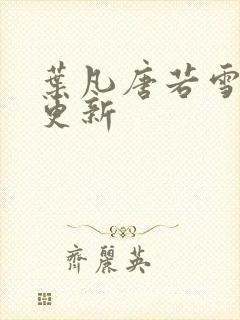 葉凡唐若雪
更新
齊麗英